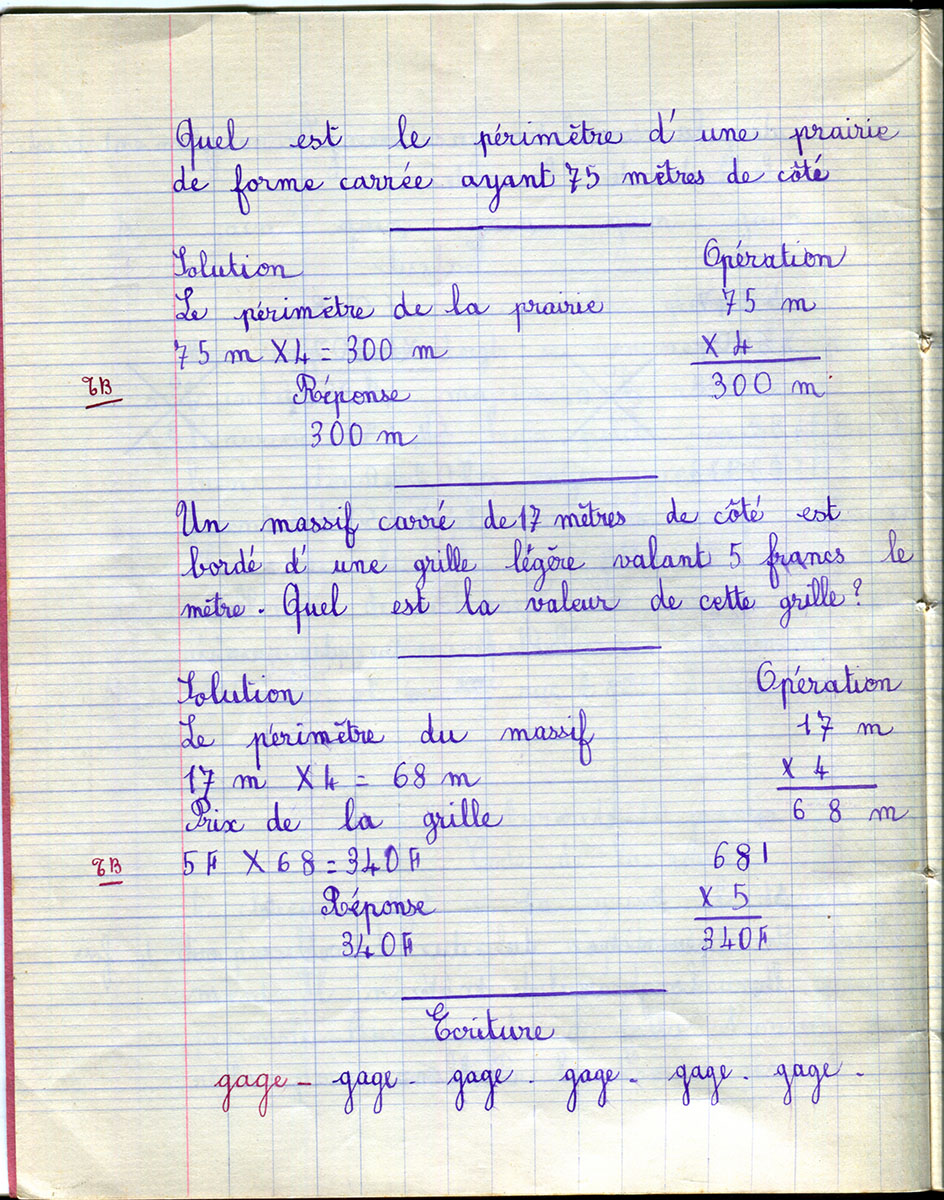 Quel est le périmètre d'une prairie
de forme carrée ayant 75 mètres de côté
Solution Opération
Le périmètre de la prairie 75 m
75 m X 4 = 300 m X 4
TB Réponse 300 m
300 m
Un massif carré de 17 mètres de côté est
bordé d'une grille légère valant 5 francs le
mètre. Quel est la valeur de cette grille?
Solution Opération
Le périmètre du massif 17 m
17 m X 4 = 68 m X 4
Prix de la grille 68 m
TB 5F X 68 = 340F 681
Réponse X 5
340F 340F
Ecriture
gage - gage - gage - gage - gage - gage -